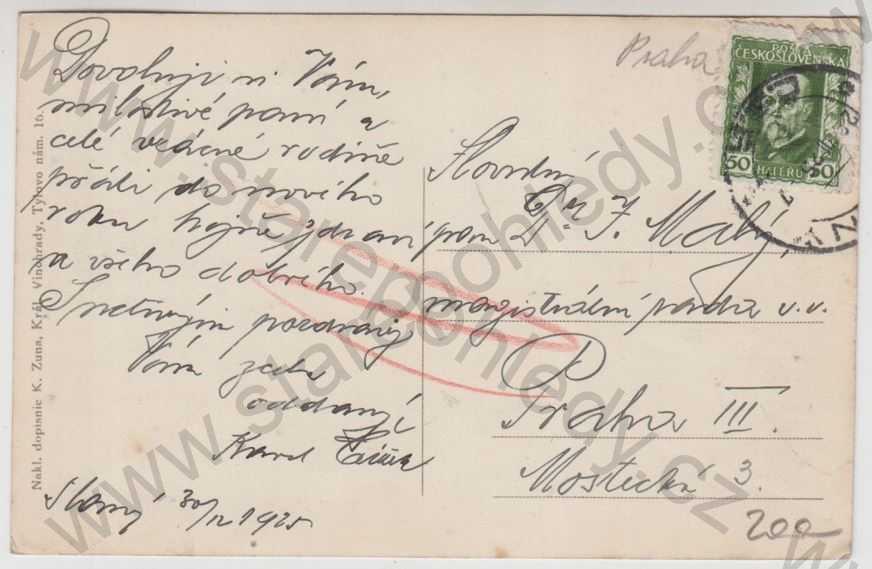 Dovoluji si Vám,
milostivé paní a
celé vzácné rodině
přáti do nového
roku hojně zdraví
a všeho dobrého.
S uctivými pozdravy
Vám zcela
oddaný
Karel
Slaný 30/12 1925
Nakl. dopisnic K. Zuna, Král. Vinohrady, Tylovo nám. 16.
Praha
POŠTA
ČESKOSLOVENSKÁ
50 HALÉŘŮ 50
Slovutný
pan Dr. J. Malý,
magistrátní rada v. v.
Praha III.
Mostecká 3.
200
www.starepohledy.cz